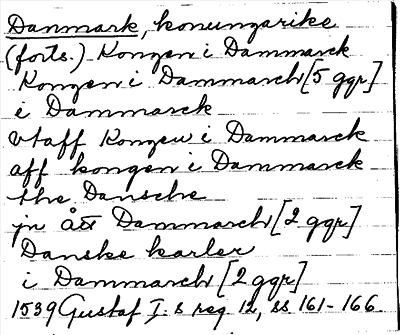 Danmark, konungarike
(forts.) Kongen i Dammarck
Kongen i Dammarch [5 ggr]
i Dammarck
vtaff Kongen i Dammarck
aff kongen i Dammarck
the Dansche
jn åt Dammarch [2 ggr]
Danske karler
i Dammarch [2 ggr]
1539 Gustaf I. s reg 12, ss 161-166.